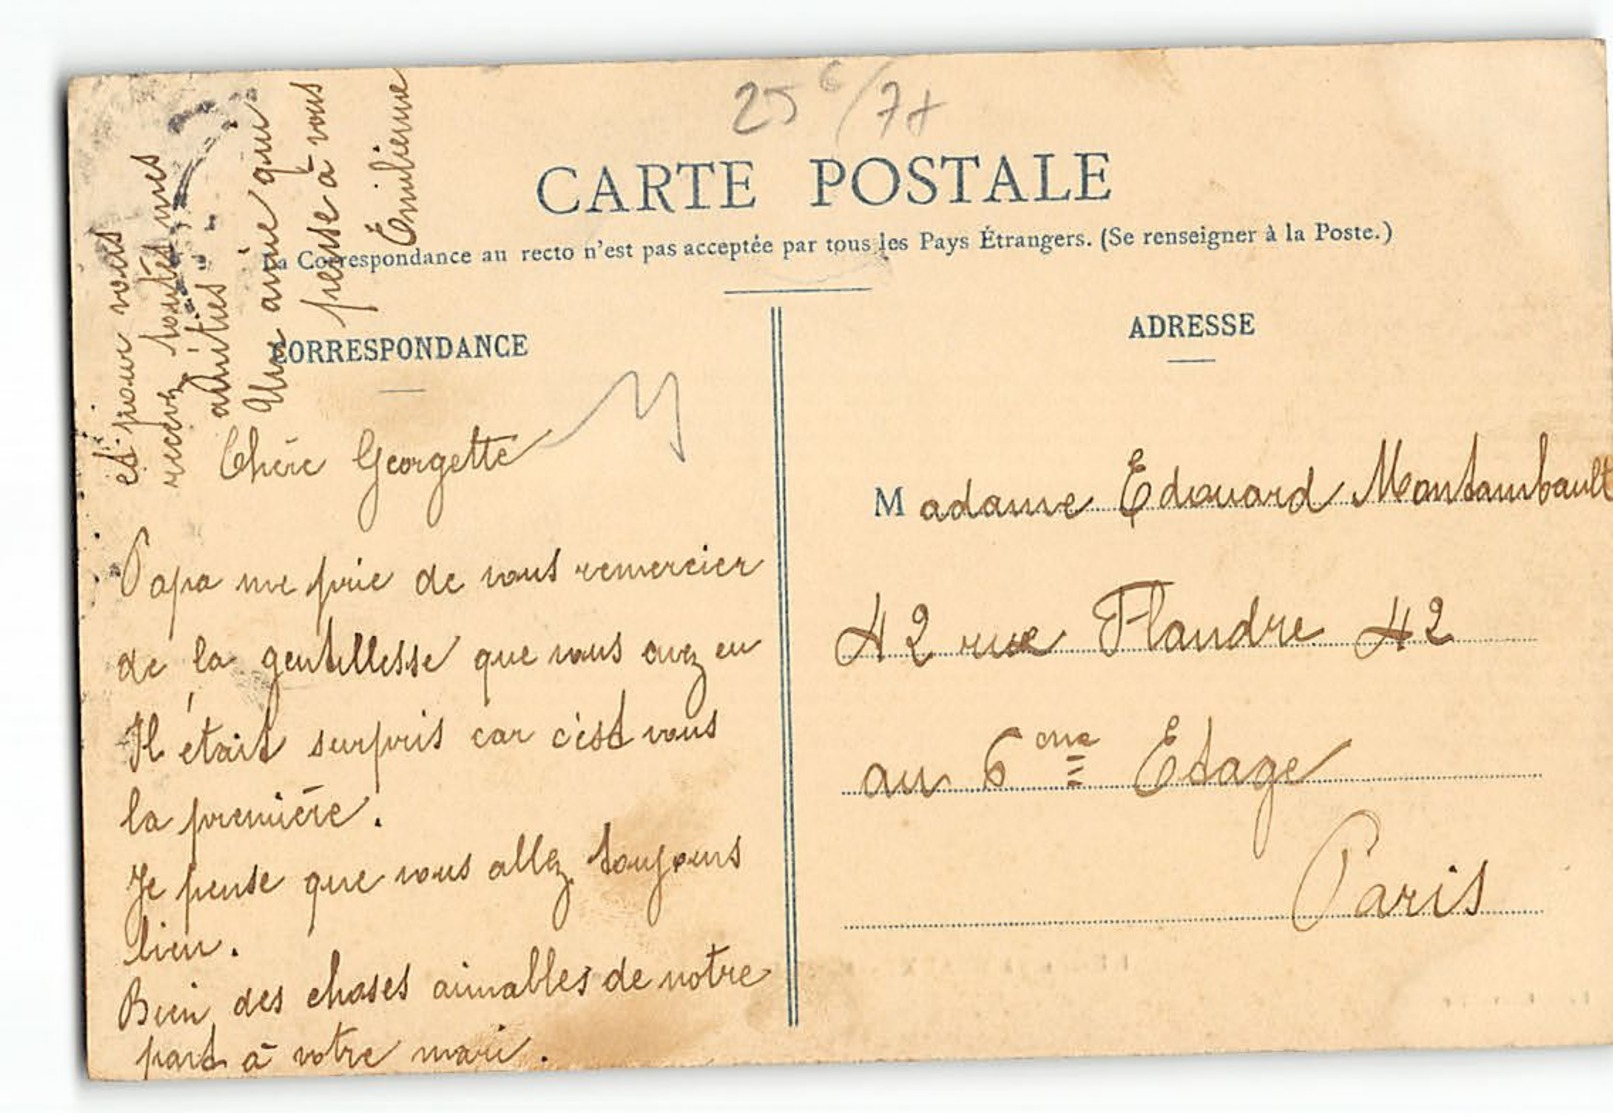 25 6/7+
CARTE POSTALE
La Correspondance au recto n'est pas acceptée par tous les Pays Étrangers. (Se renseigner à la Poste.)
CORRESPONDANCE
Chère Georgette
Papa me prie de vous remercier
de la gentillesse que vous avez eu
Il était surpris car c'est vous
la première.
Je pense que vous allez toujours
bien.
Bien des choses aimables de notre
part à votre mari.
et pour vous
recevez toutes mes
amitiés
Une amie qui
pense à vous
Émilienne
ADRESSE
Madame Edouard Montambault
42 rue Flandre 42
au 6eme Etage
Paris